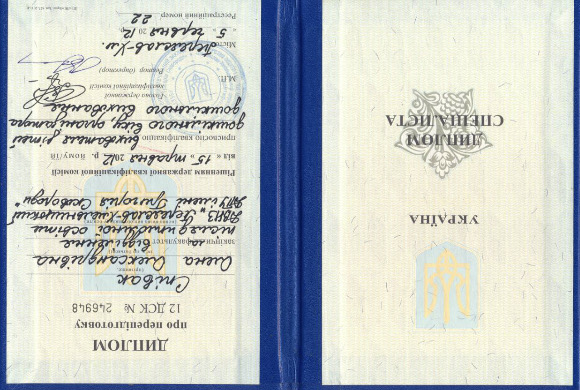 УКРАЇНА
ДИПЛОМ
СПЕЦІАЛІСТА
ДИПЛОМ
про перепідготовку
12 ДСК № 246948
Співак
Олена Олександрівна
закінчила факультет відділення
післядипломної освіти
ДВНЗ „Переяслав-Хмельницький
ДПУ імені Григорія Сковороди"
Рішенням державної кваліфікаційної комісії
від « 15 » травня 2012 р. йому/їй
присвоєно кваліфікацію вихователя дітей
дошкільного віку, організатора
дошкільного виховання
Голова державної
кваліфікаційної комісії
М.П.
Ректор (директор)
Місто Переяслав-Хм.
« 5 » червня 2012 р.
Реєстраційний номер 22